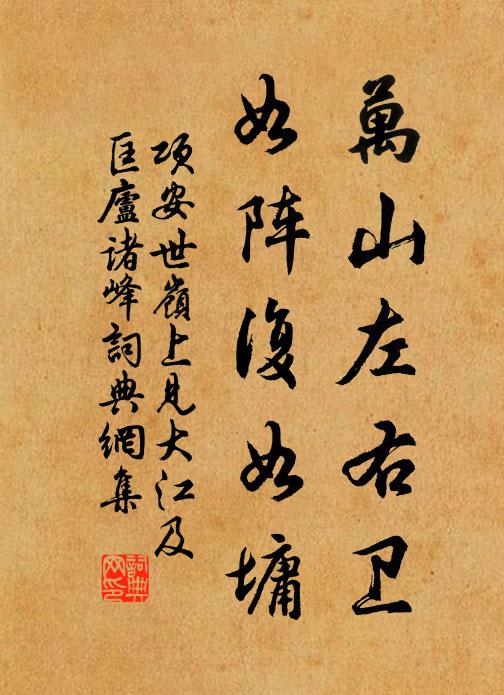 萬山左右卫
如阵復如墉
项安世嶺上見大江及
匡廬诸峰詞典網集
詞典网印